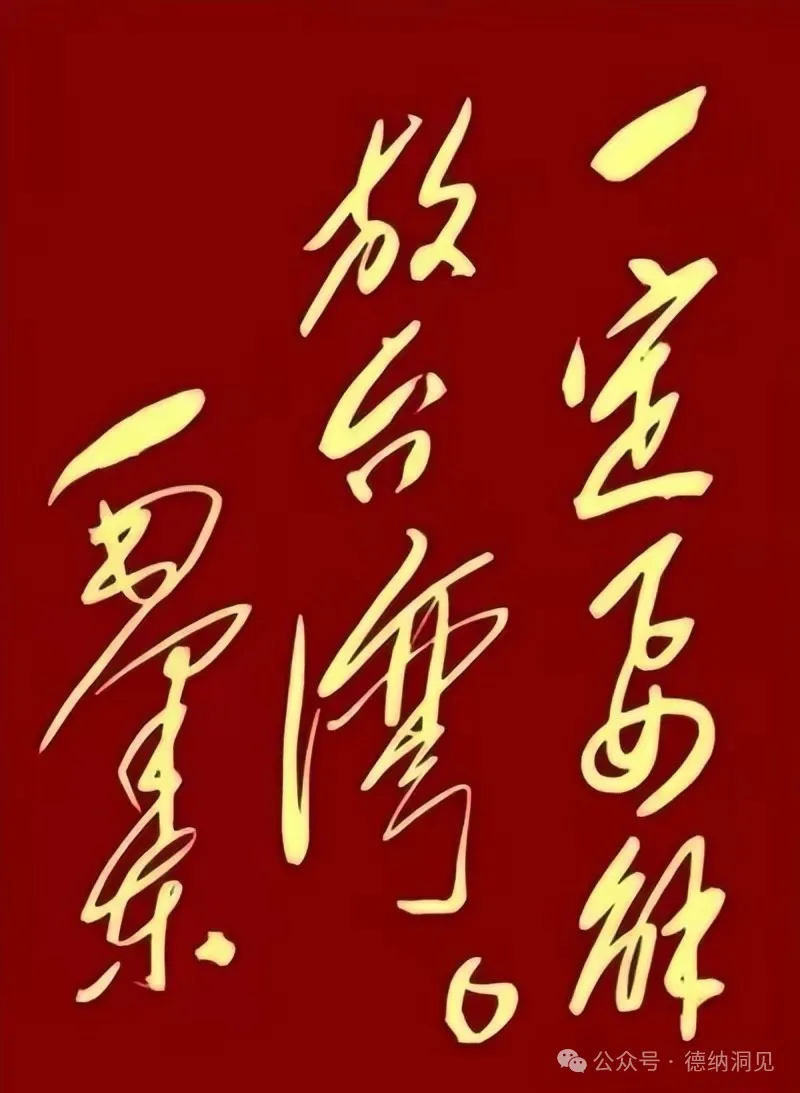 一定要解
放台湾。
毛泽东
公众号·德纳洞见